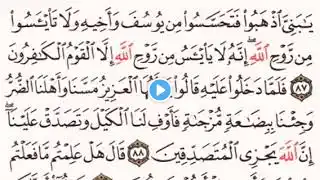 يَـٰبَنِىَّ ٱذْهَبُوا۟ فَتَحَسَّسُوا۟ مِن يُوسُفَ وَأَخِيهِ وَلَا تَا۟يْـَٔسُوا۟
مِن رَّوْحِ ٱللَّهِ ۖ إِنَّهُۥ لَا يَا۟يْـَٔسُ مِن رَّوْحِ ٱللَّهِ إِلَّا ٱلْقَوْمُ ٱلْكَـٰفِرُونَ
٨٧ فَلَمَّا دَخَلُوا۟ عَلَيْهِ قَالُوا۟ يَـٰٓأَيُّهَا ٱلْعَزِيزُ مَسَّنَا وَأَهْلَنَا ٱلضُّرُّ
وَجِئْنَا بِبِضَـٰعَةٍ مُّزْجَىٰةٍ فَأَوْفِ لَنَا ٱلْكَيْلَ وَتَصَدَّقْ عَلَيْنَآ ۖ
إِنَّ ٱللَّهَ يَجْزِى ٱلْمُتَصَدِّقِينَ ٨٨ قَالَ هَلْ عَلِمْتُم مَّا فَعَلْتُم